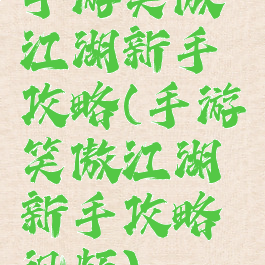 手游笑傲
江湖新手
攻略(手游
笑傲江湖
新手攻略
视频)